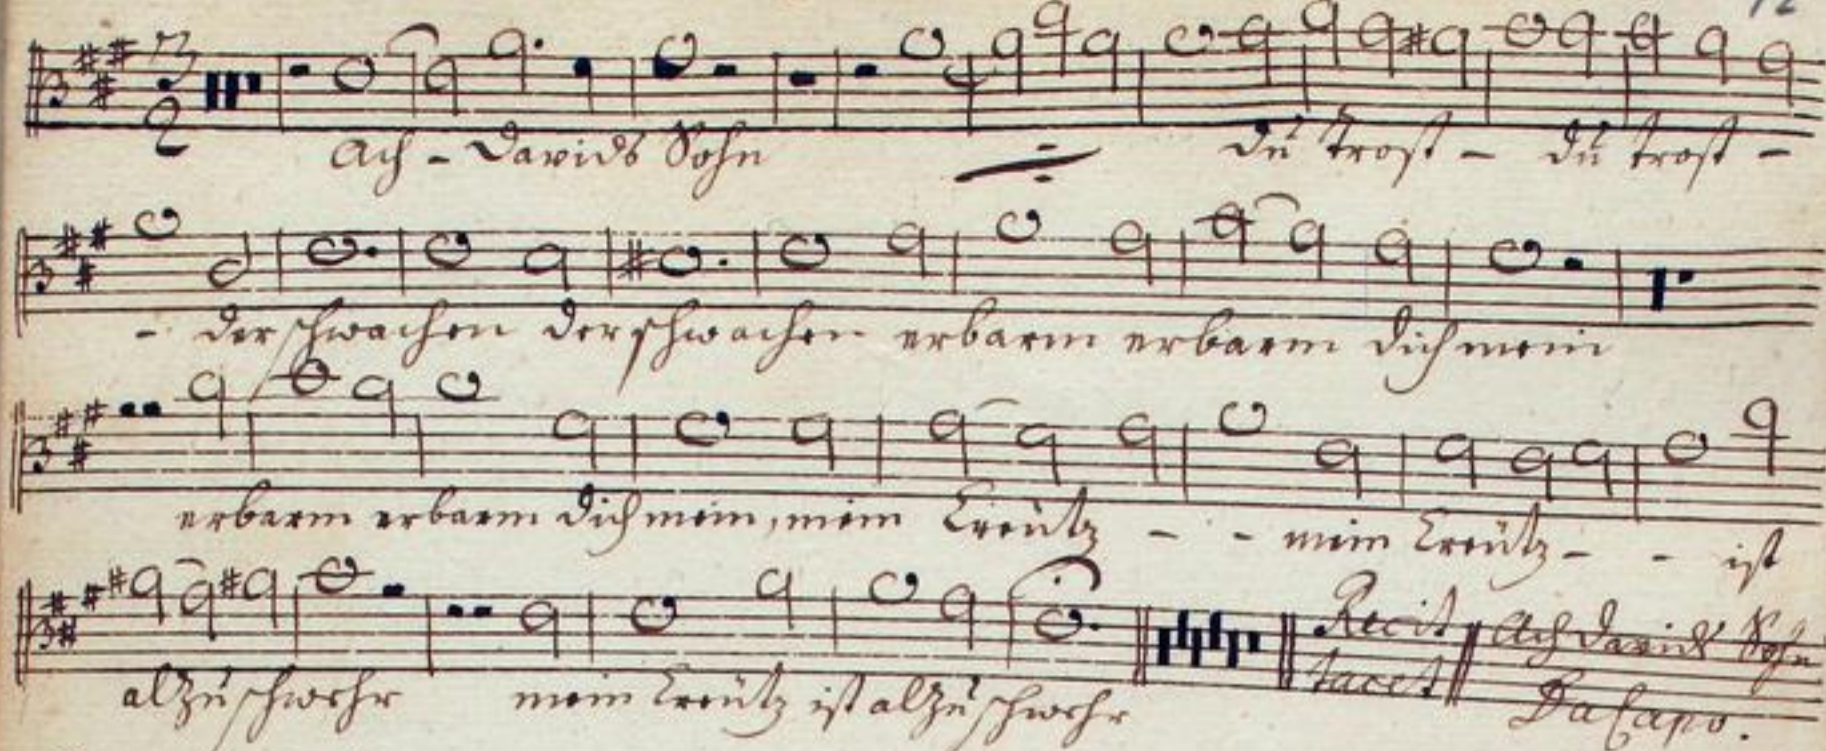 12
3
2
Ach - Davids Sohn du trost - du trost -
- der schwachen der schwachen erbarm erbarm dich mein
erbarm erbarm dich mein, mein Creütz - - mein Creütz - - ist
alzu schwehr mein Creütz ist alzu schwehr Recit tacet Ach Davids Sohn Da Capo.